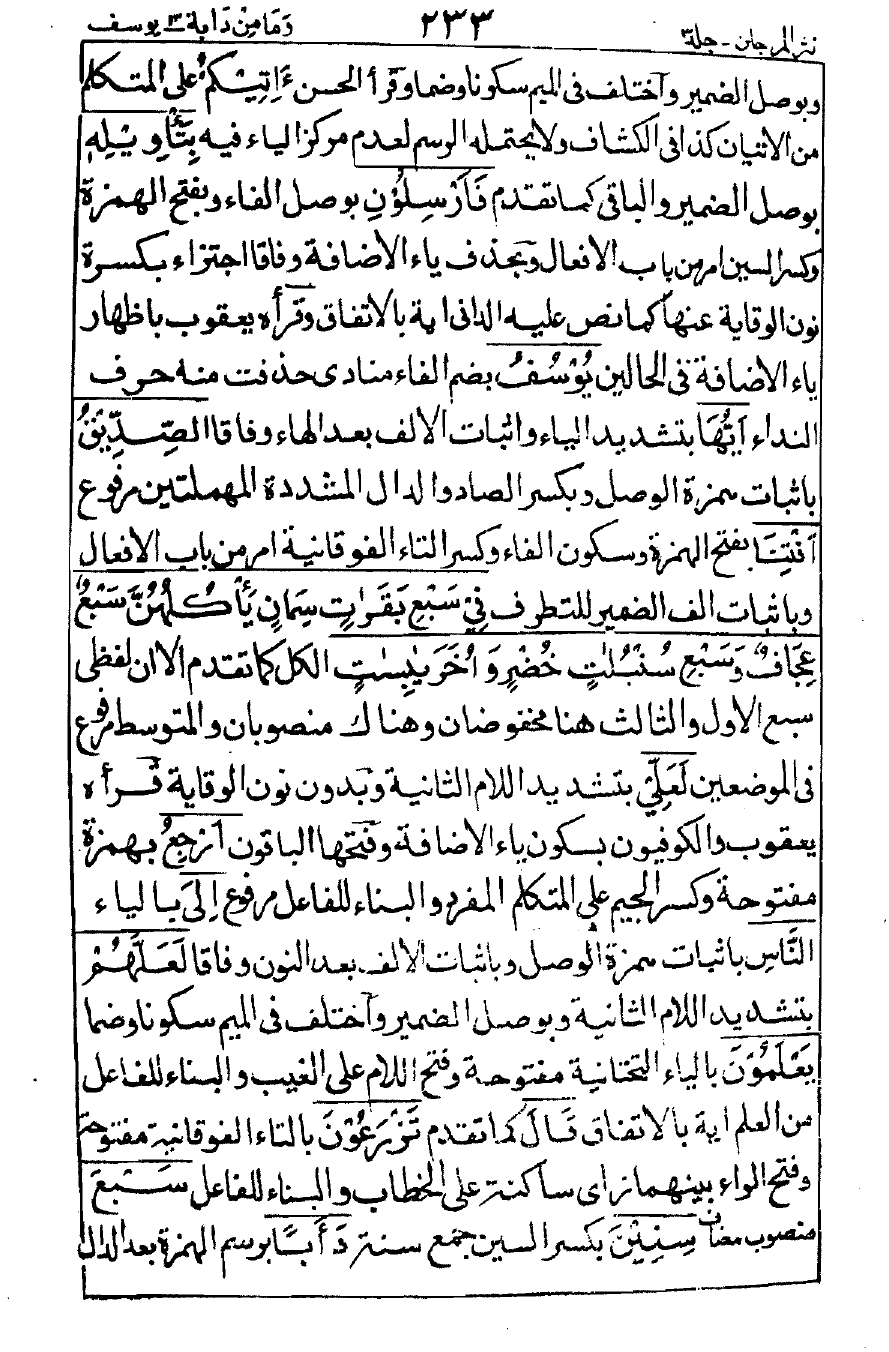 نثر المرجان - جلد ٣
٢٣٣
وما من دابة ١٢ يوسف
وبوصل الضمير وآختلف فى الميم سكونا وضما وقرأ الحسن ءَاتِيْكُمْ على المتكلم
من الاتيان كذا فى الكشاف ولا يحتمله الرسم لعدم مركز الياء فيه بِتَأْوِيْلِهٖ
بوصل الضمير والباقى كما تقدم فَاَرْسِلُوْنِ بوصل الفاء وبفتح الهمزة
وكسر السين امر من باب الافعال وبحذف ياء الاضافة وفاقا اجتزاء بكسرة
نون الوقاية عنها كما نص عليه الدانى اية بالاتفاق وقرأه يعقوب باظهار
ياء الاضافة فى الحالين يُوْسُفُ بضم الفاء منادى حذفت منه حرف
النداء اَيُّهَا بتشديد الياء واثبات الالف بعد الهاء وفاقا الصِّدِّيْقُ
باثبات همزة الوصل وبكسر الصاد والدال المشددة المهملتين مرفوع
اَفْتِنَا بفتح الهمزة وسكون الفاء وكسر التاء الفوقانية امر من باب الافعال
وباثبات الف الضمير للتطرف فِيْ سَبْعِ بَقَرٰتٍ سِمَانٍ يَأْكُلُهُنَّ سَبْعٌ
عِجَافٌ وَسَبْعِ سُنْبُلٰتٍ خُضْرٍ وَاُخَرَ يٰبِسٰتٍ الكل كما تقدم الا ان لفظى
سبع الاول والثالث هنا مخفوضان وهناك منصوبان والمتوسط مرفوع
فى الموضعين لَعَلِّيْ بتشديد اللام الثانية وبدون نون الوقاية قرأه
يعقوب والكوفيون بسكون ياء الاضافة وفتحها الباقون اَرْجِعُ بهمزة
مفتوحة وكسر الجيم على المتكلم المفرد والبناء للفاعل مرفوع اِلَى بالياء
النَّاسِ باثبات همزة الوصل وباثبات الالف بعد النون وفاقا لَعَلَّهُمْ
بتشديد اللام الثانية وبوصل الضمير وآختلف فى الميم سكونا وضما
يَعْلَمُوْنَ بالياء التحتانية مفتوحة وفتح اللام على الغيب والبناء للفاعل
من العلم اية بالاتفاق قَالَ كما تقدم تَزْرَعُوْنَ بالتاء الفوقانية مفتوحة
وفتح الراء بينهما زاى ساكنة على الخطاب والبناء للفاعل سَبْعَ
منصوب مضاف سِنِيْنَ بكسر السين جمع سنة دَأَبًا برسم الهمزة بعد الدال